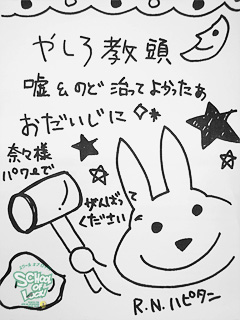 やしろ教頭
嘘&のど治ってよかったぁ
おだいじに
奈々様
パワーで
がんばって
ください
R.N.ハピタン
SCHOOL
OF
LOCK!